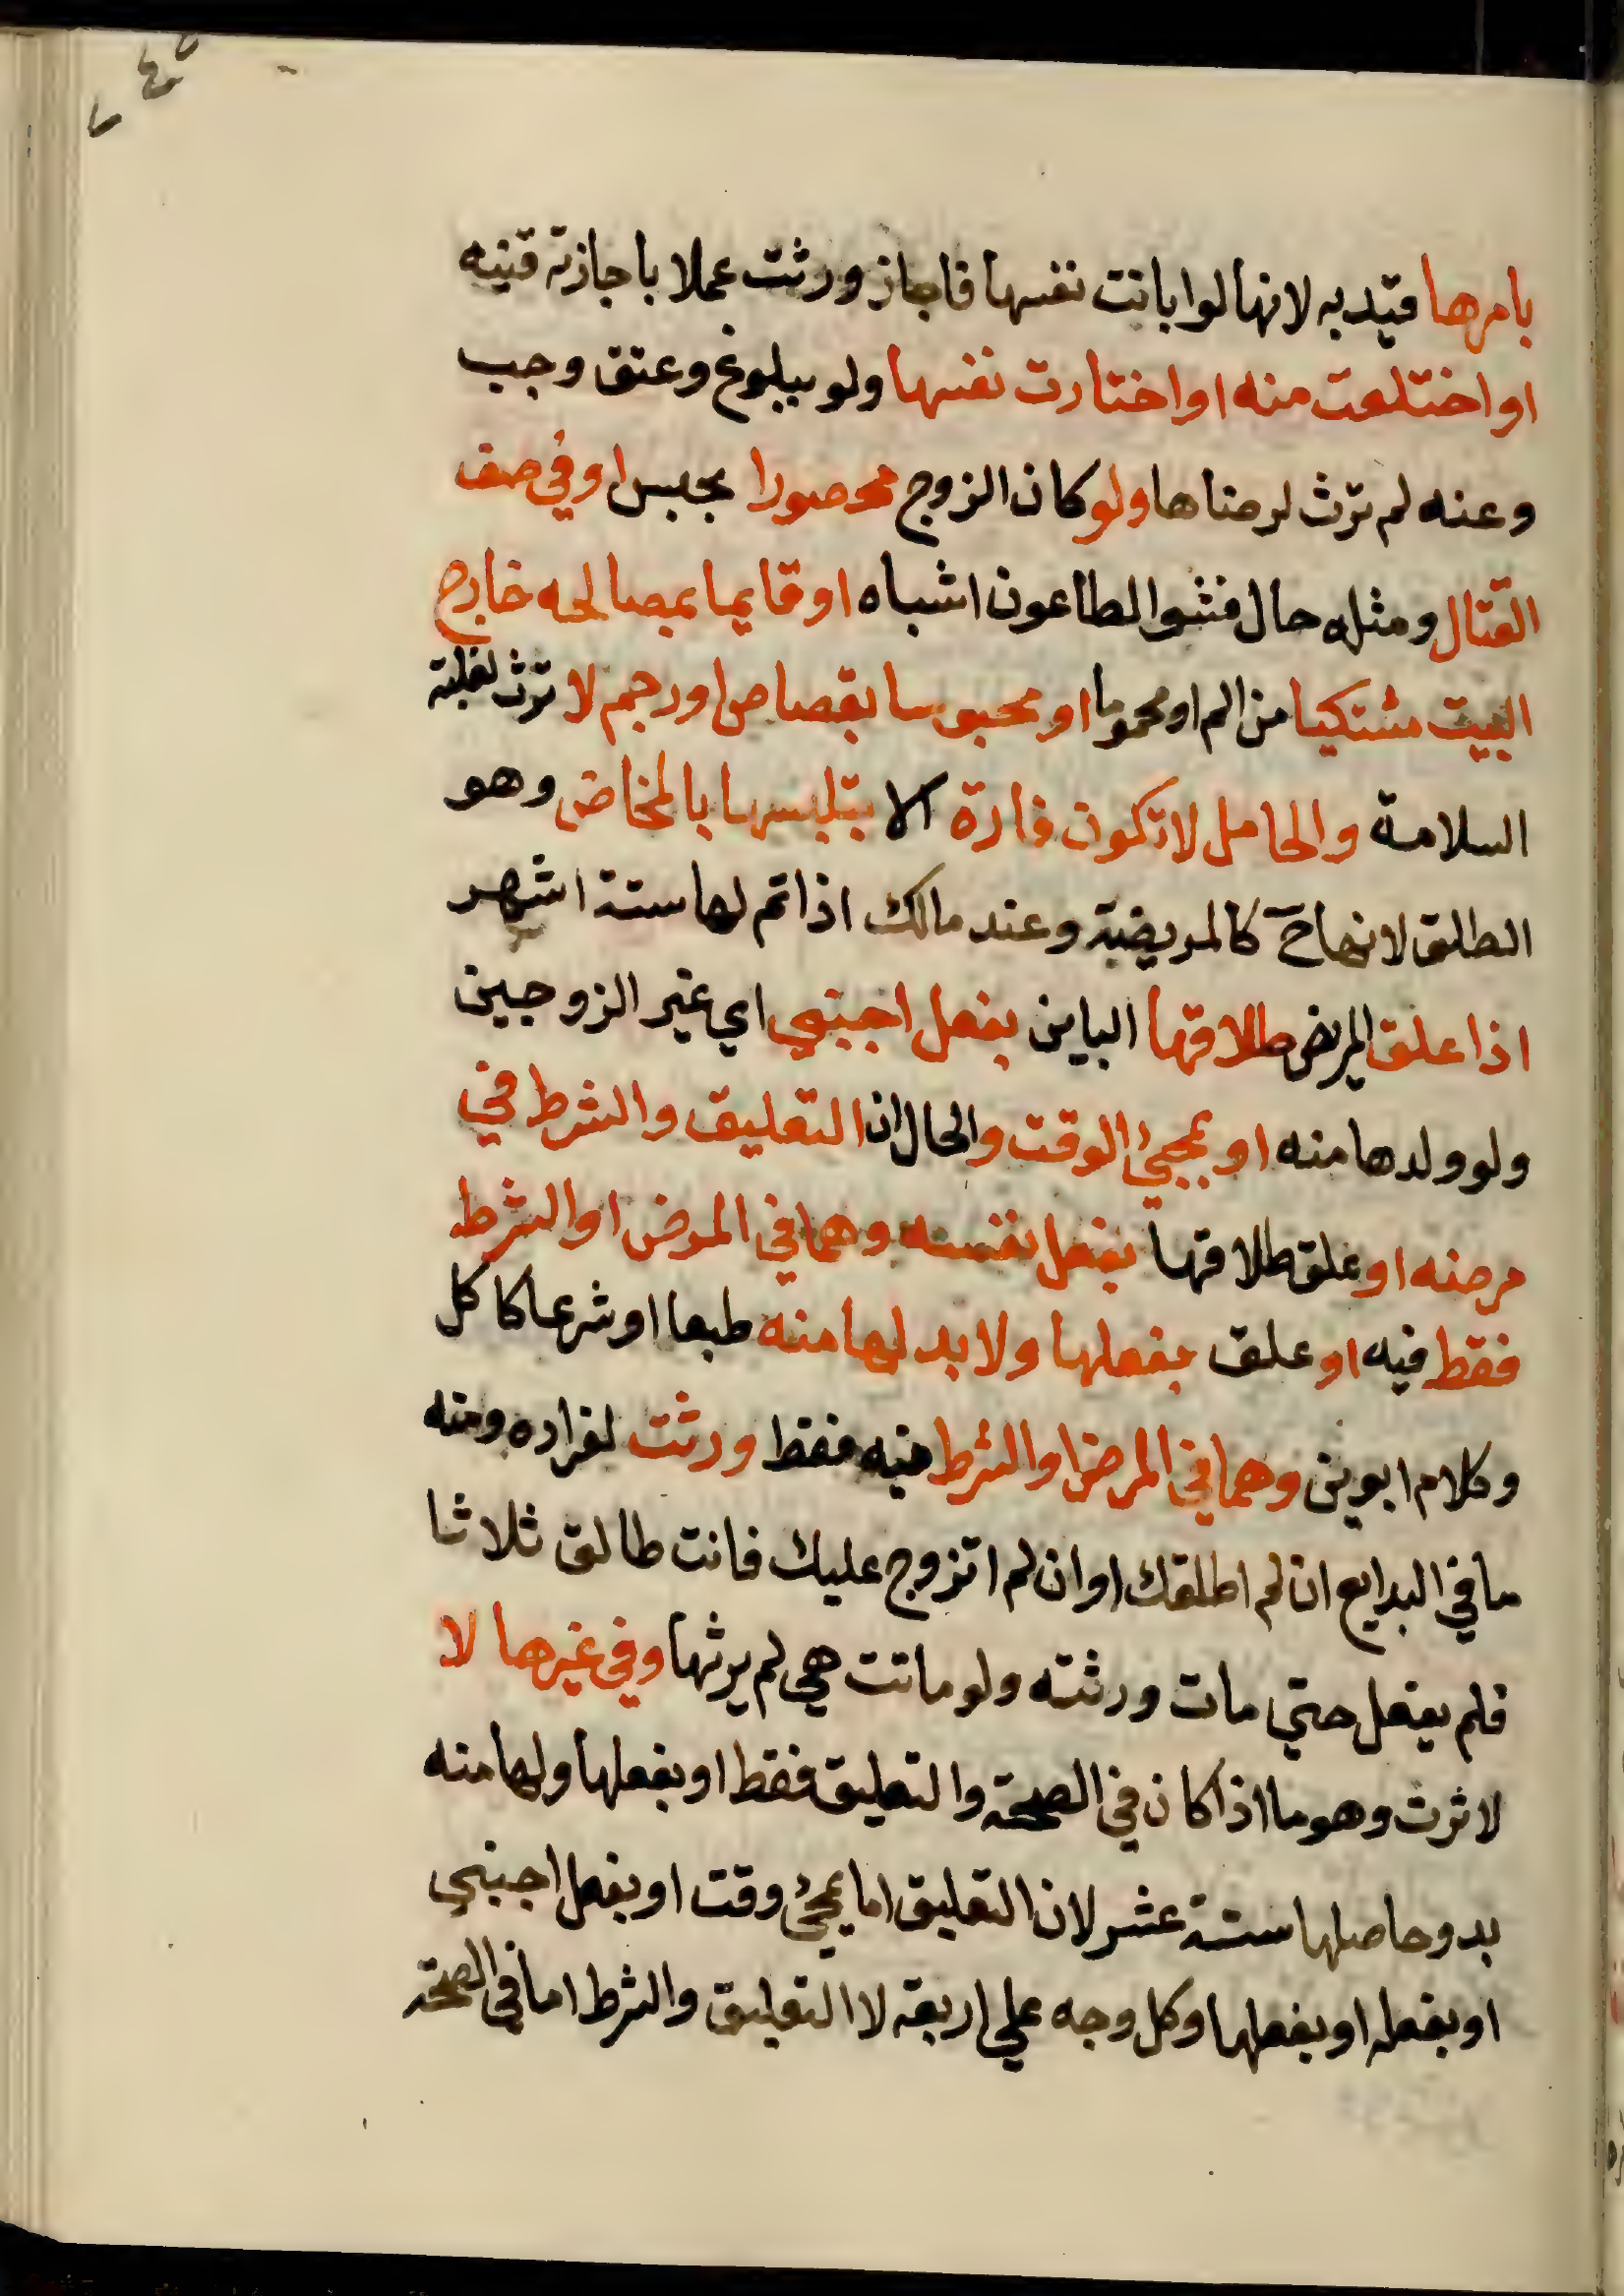 بامرها قيد به لانها لو ابانت نفسها فاجاز ورثت عملا باجازته قنيه
او اختلعت منه او اختارت نفسها ولو ببلوغ وعتق وجب
وعنه لم ترث لرضاها ولو كان الزوج محصورا بحبس او في صف
القتال ومثله حال فشو الطاعون اشباه او قايما بمصالحه خارج
البيت مشتكيا من الم او محموما او محبوسا بقصاص او رجم لا ترث لغلبة
السلامة والحامل لا تكون فارة الا بتلبسها بالمخاض وهو
الطلق لانها ح كالمريضة وعند مالك اذا تم لها ستة اشهر
اذا علق المريض طلاقها الباين بفعل اجنبي اي غير الزوجين
ولو ولدها منه او بمجئ الوقت والحال ان التعليق والشرط في
مرضه او علق طلاقها بفعل نفسه وهما في المرض او الشرط
فقط فيه او علق بفعلها ولا بد لها منه طبعا او شرعا كاكل
وكلام ابوين وهما في المرض او الشرط فيه فقط ورثت لفراره ومنه
ما في البدايع ان لم اطلقك او ان لم اتزوج عليك فانت طالق ثلاثا
فلم يفعل حتي مات ورثته ولو ماتت هي لم يرثها وفي غيرها لا
لا ترث وهو ما اذا كان في الصحة والتعليق فقط او بفعلها ولها منه
بد وحاصلها ستة عشر لان التعليق اما بمجئ وقت او بفعل اجنبي
او بفعله او بفعلها وكل وجه علي اربعة لا التعليق والشرط اما في الصحة